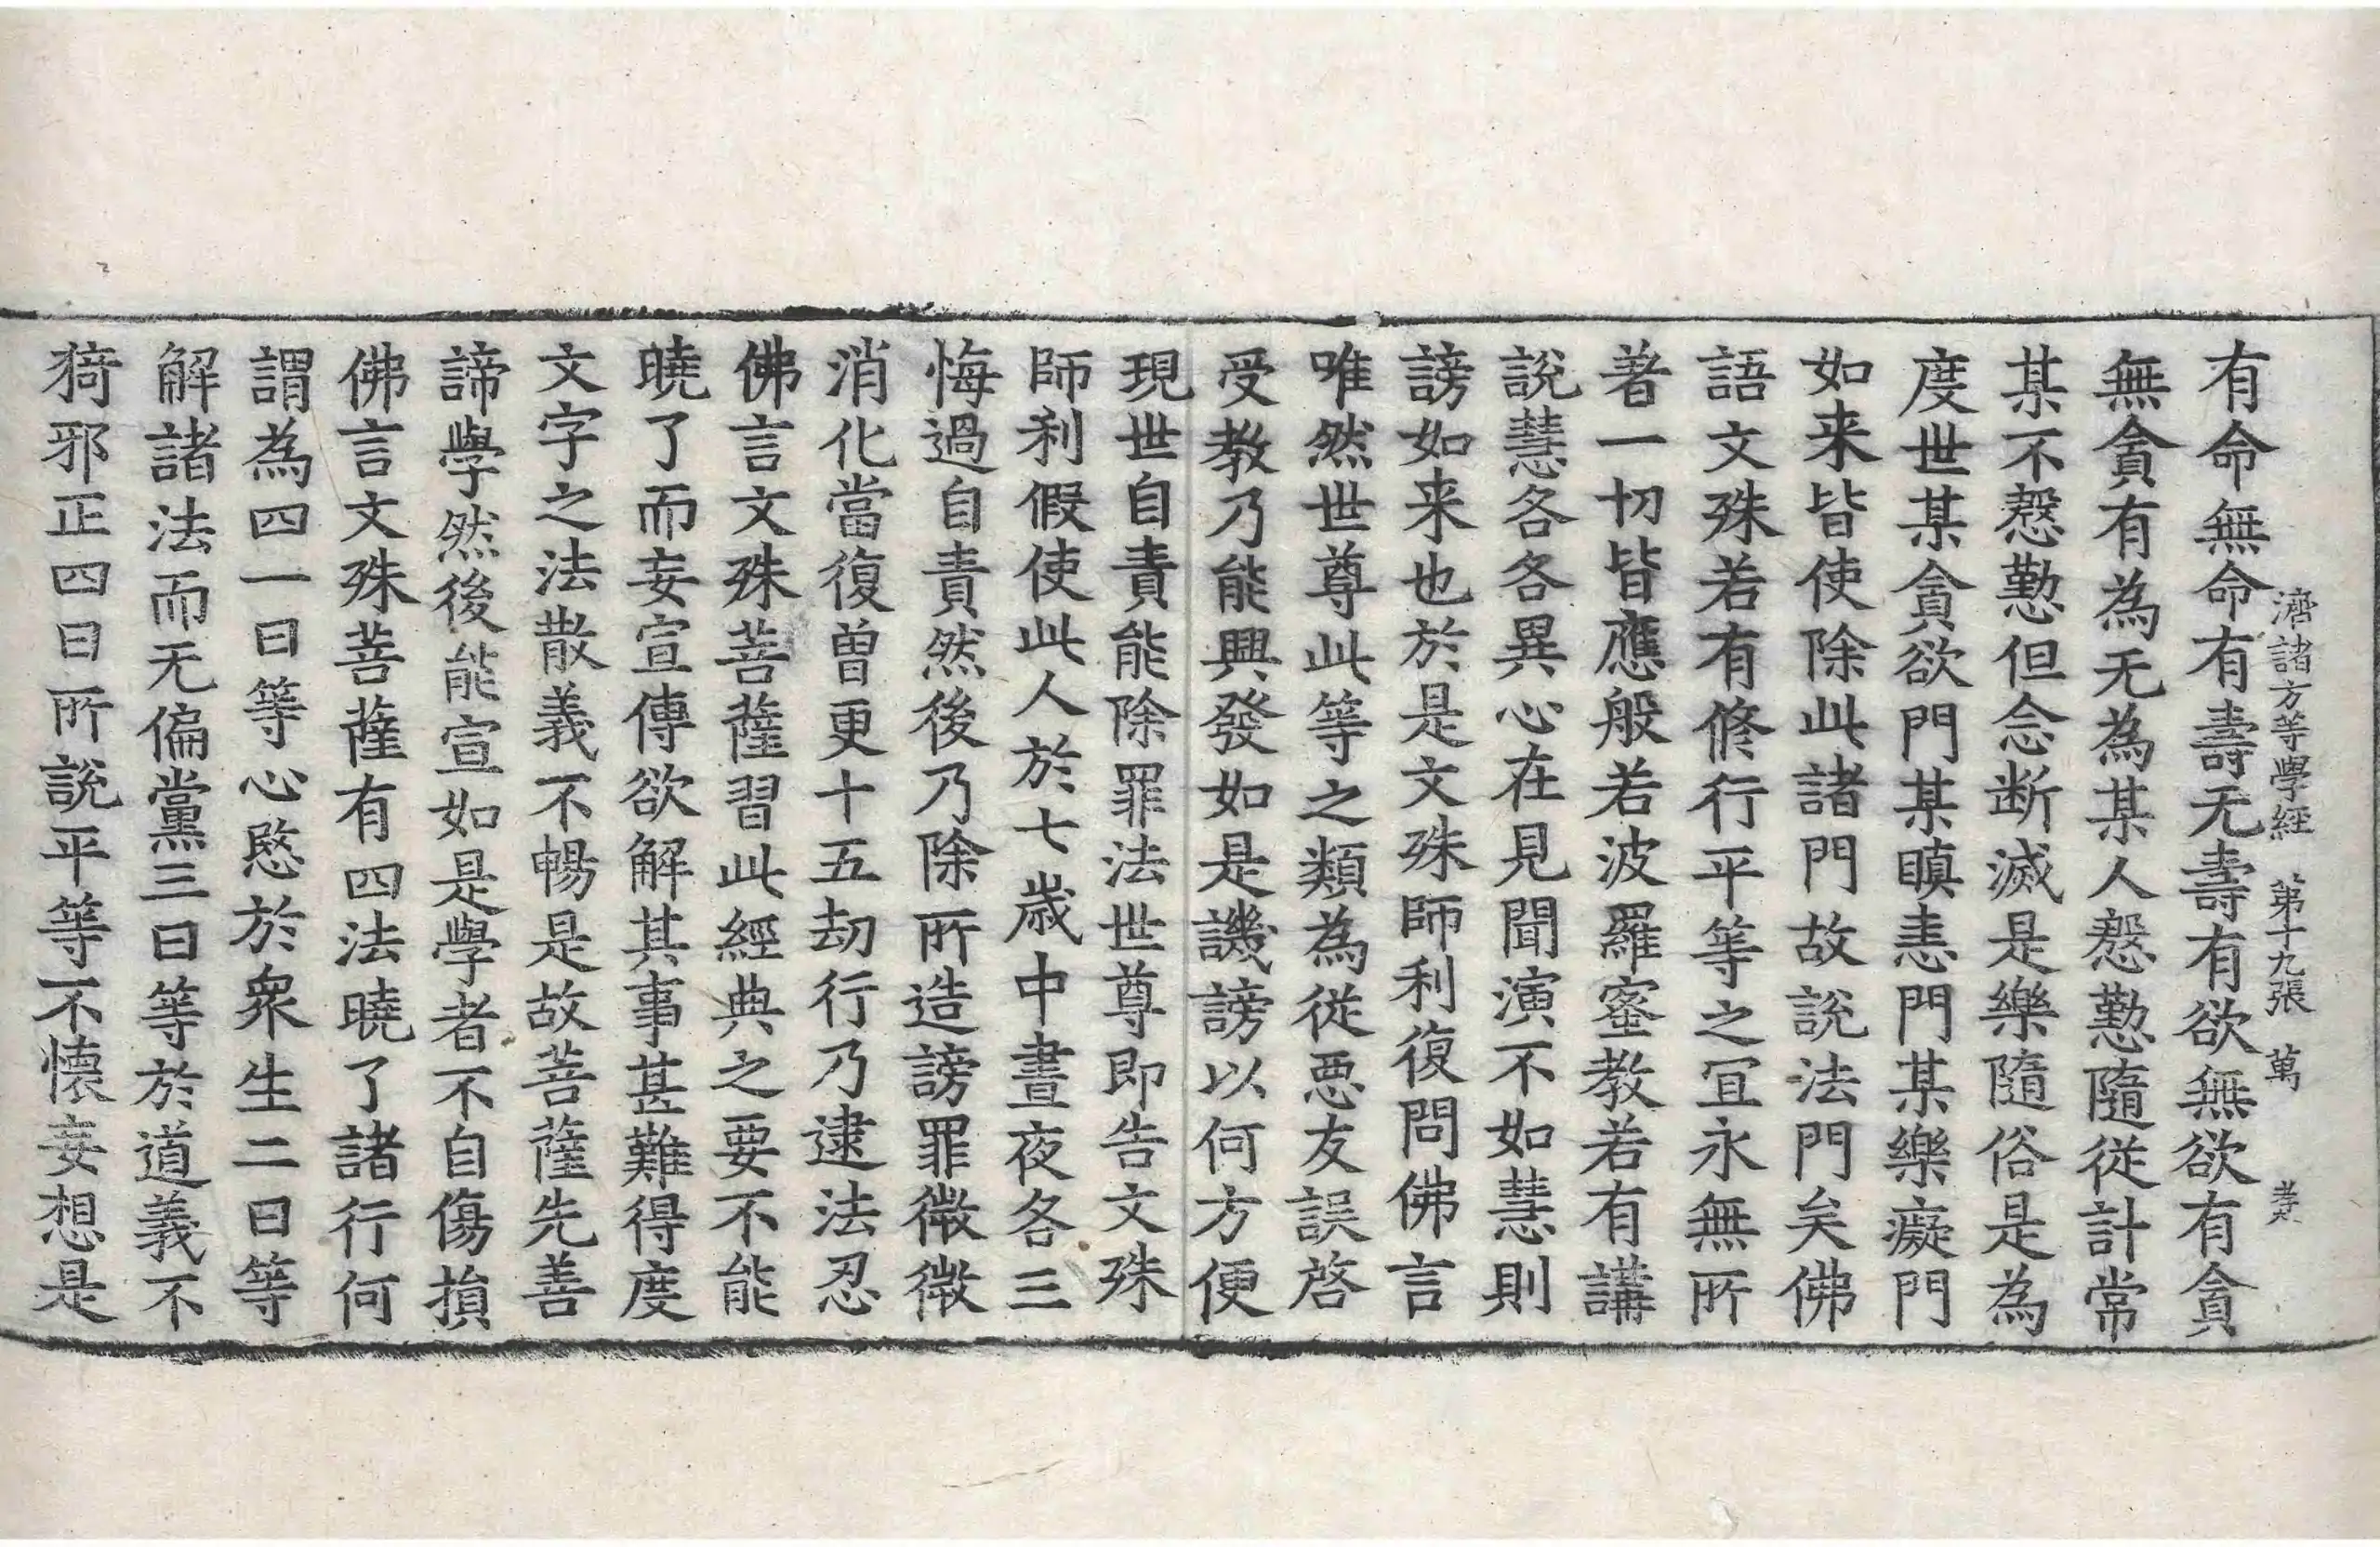 有命無命有壽无壽有欲無欲有貪
濟諸方等學經 第十九張 萬
無貪有為无為某人慇懃隨從計常
某不慇懃但念断滅是樂隨俗是為
度世某貪欲門某瞋恚門某樂癡門
如来皆使除此諸門故說法門矣佛
語文殊若有修行平等之冝永無所
著一切皆應般若波羅蜜教若有講
說慧各各異心在見聞演不如慧則
謗如来也於是文殊師利復問佛言
唯然世尊此等之類為從惡友誤啓
受教乃能興發如是譏謗以何方便
現世自責能除罪法世尊即告文殊
師利假使此人於七歲中晝夜各三
悔過自責然後乃除所造謗罪微微
消化當復曽更十五劫行乃逮法忍
佛言文殊菩薩習此經典之要不能
曉了而妄宣傳欲解其事甚難得度
文字之法散義不暢是故菩薩先善
諦學然後能宣如是學者不自傷損
佛言文殊菩薩有四法曉了諸行何
謂為四一曰等心愍於衆生二曰等
解諸法而无偏黨三曰等於道義不
猗邪正四曰所說平等不懷妄想是